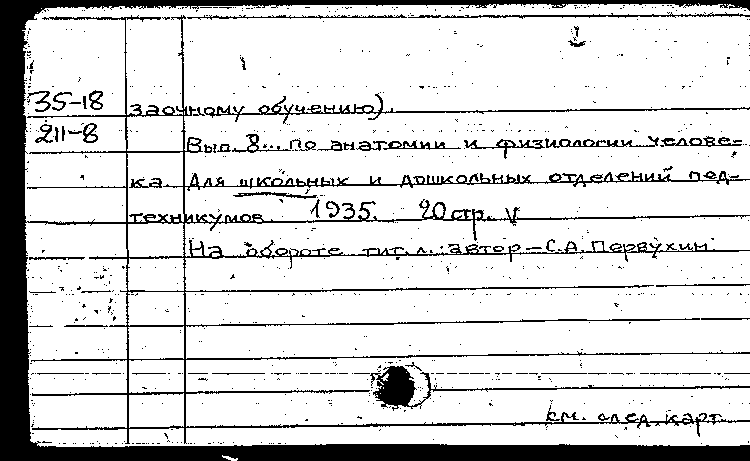 35-18 заочному обучению).
211-8
Вып. 8... по анатомии и физиологии челове=
ка. Для школьных и дошкольных отделений пед-
техникумов. 1935. 20 стр. V
На обороте тит. л.: автор – С.А. Первухин.
см. след. карт.